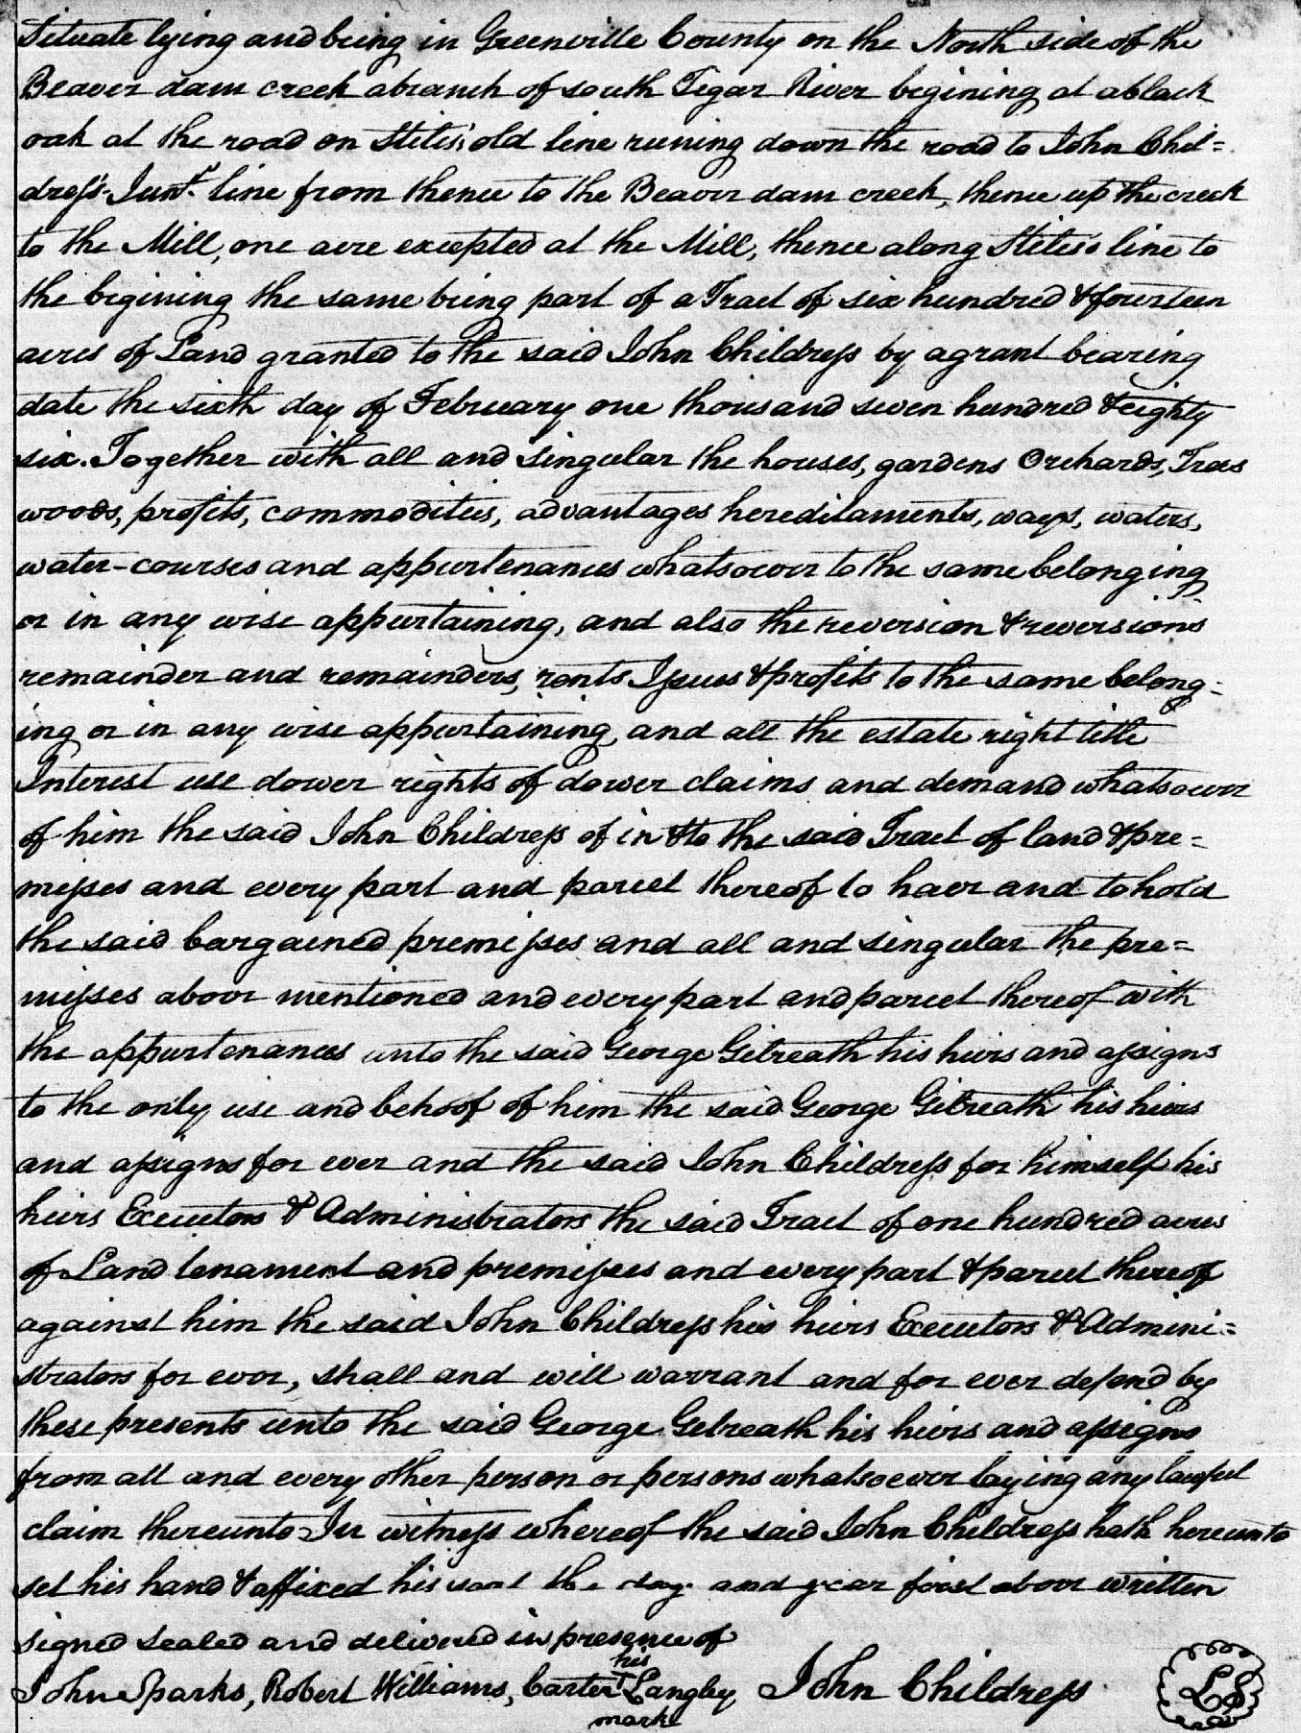 Situate lying and being in Greenville County on the North side of the
Beaver dam creek a branch of south Tigar River begining at a black
oak at the road on Stiles's old line runing down the road to John Chil=
dress Junr. line from thence to the Beaver dam creek, thence up the creek
to the Mill, one acre excepted at the Mill, thence along Stiles's line to
the begining the same being part of a Tract of six hundred & fourteen
acres of Land granted to the said John Childress by a grant bearing
date the sixth day of February one thousand seven hundred & eighty
six. Together with all and singular the houses, gardens Orchards, Trees
woods, profits, commodities, advantages hereditaments, ways, waters,
water-courses and appurtenances whatsoever to the same belonging
or in any wise appurtaining, and also the reversion & reversions
remainder and remainders, rents Issues & profits to the same belong=
ing or in any wise appurtaining, and all the estate right title
Interest use dower rights of dower claims and demand whatsoever
of him the said John Childress of in & to the said Tract of land & pre=
misses and every part and parcel thereof to have and to hold
the said bargained premisses and all and singular the pre=
misses above mentioned and every part and parcel thereof with
the appurtenances unto the said George Gilreath his heirs and assigns
to the only use and behoof of him the said George Gilreath his heirs
and assigns for ever and the said John Childress for himself his
heirs Executors & Administrators the said Tract of one hundred acres
of Land tenament and premisses and every part & parcel thereof
against him the said John Childress his heirs Executors & Admini=
strators for ever, shall and will warrant and for ever defend by
these presents unto the said George Gilreath his heirs and assigns
from all and every other person or persons whatsoever laying any lawful
claim thereunto In witness whereof the said John Childress hath hereunto
set his hand & affixed his seal the day and year first above written
signed sealed and delivered in presence of
his
John Sparks, Robert Williams, Carter + Langley John Childress LS
mark